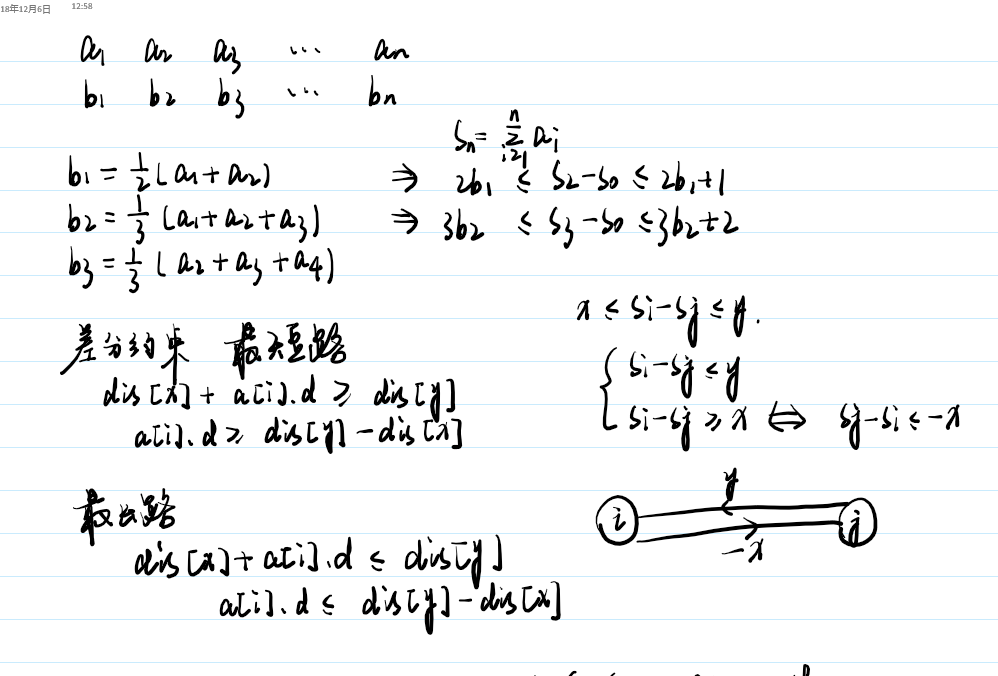 18年12月6日 12:58
a₁ a₂ a₃ ⋯ aₙ
b₁ b₂ b₃ ⋯ bₙ
Sₙ = ∑ᵢ₌₁ⁿ aᵢ
b₁ = 1/2 (a₁ + a₂) ⇒ 2b₁ ≤ S₂ - S₀ ≤ 2b₁ + 1
b₂ = 1/3 (a₁ + a₂ + a₃) ⇒ 3b₂ ≤ S₃ - S₀ ≤ 3b₂ + 2
b₃ = 1/3 (a₂ + a₃ + a₄)
x ≤ Si - Sj ≤ y.
差分约束 最短路
{ Si - Sj ≤ y
dis[x] + a[i].d ≥ dis[y]
Si - Sj ≥ x ⇔ Sj - Si ≤ -x
a[i].d ≥ dis[y] - dis[x]
y
最长路
i j
-x
dis[x] + a[i].d ≤ dis[y]
a[i].d ≤ dis[y] - dis[x]